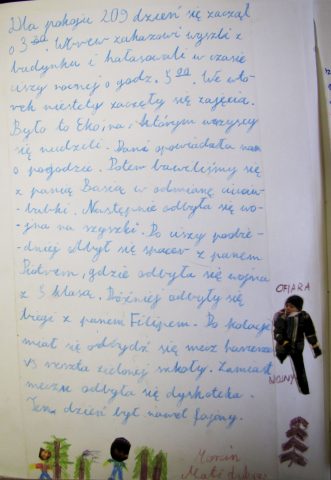 Dla pokoju 209 dzień się zaczął
o 3 30. Wbrew zakazowi wyszli z
budynku i hałasowali w czasie
ciszy nocnej o godz. 5 00. We wto-
rek niestety zaczęły się zajęcia.
Było to Eko, na którym wszyscy
się nudzili. Pani opowiadała nam
o pogodzie. Potem bawiliśmy się
z panią Basią w odmianę ciuciu-
babki. Następnie odbyła się wo-
jna na szyszki. Po ciszy połud-
niowej odbył się spacer z panem
Piotrem, gdzie odbyła się wojna
z 5 klasą. Później odbyły się
biegi z panem Filipem. Po kolacji
miał się odbyć się mecz harcerze
vs reszta zielonej szkoły. Zamiast
meczu odbyła się dyskoteka.
Ten dzień był nawet fajny.
OFIARA
WOJNY
Marcin